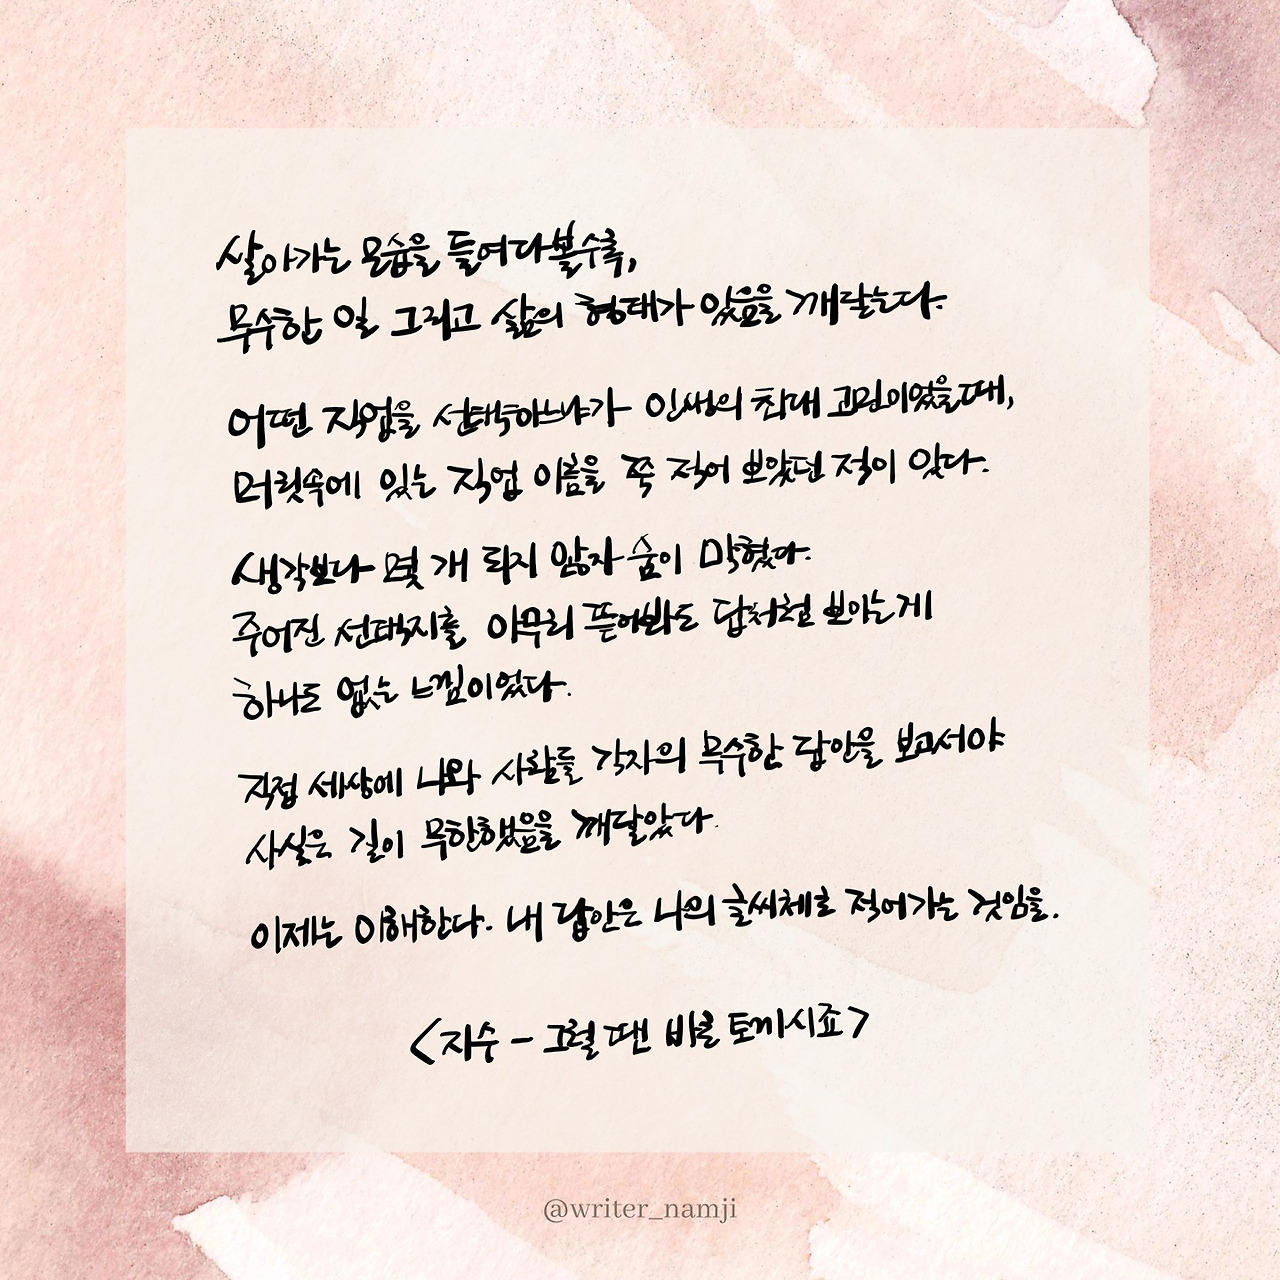 살아가는 모습을 들여다볼수록,
무수한 일 그리고 삶의 형태가 있음을 깨닫는다.
어떤 직업을 선택하느냐가 인생의 최대 고민이었을 때,
머릿속에 있는 직업 이름을 쭉 적어 보았던 적이 있다.
생각보다 몇 개 되지 않자 숨이 막혔다.
주어진 선택지를 아무리 뜯어봐도 답처럼 보이는 게
하나도 없는 느낌이었다.
직접 세상에 나와 사람들 각자의 무수한 답안을 보고서야
사실은 길이 무한했음을 깨달았다.
이제는 이해한다. 내 답안은 나의 글씨체로 적어가는 것임을.
<지수 - 그럴 땐 바로 토끼시죠>
@writer_namji